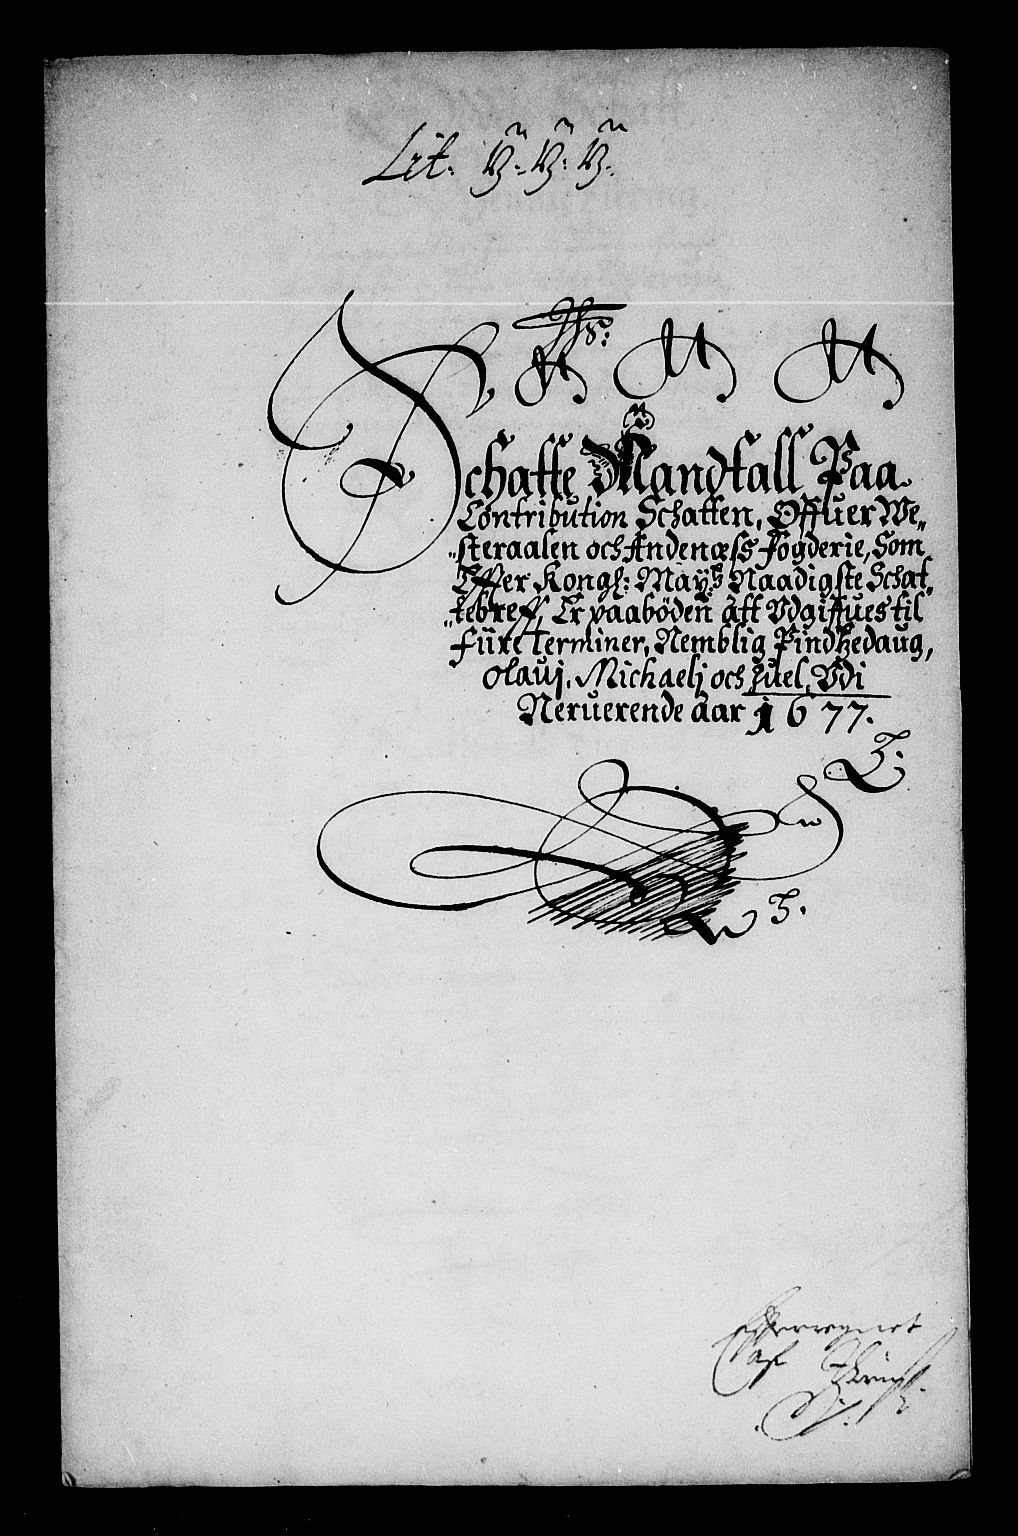 Lit:
Schatte Mandtall Paa
Contribution Schatten, Offuer We„
„steraalen och Andenæss fogderie, Som
Effer Kongl: Maÿ:ts Naadigste Schat„
„tebreff, Er paabóden att Vdgiffues til
fiire Terminer, Nemblig Pindtzedaug,
Olauj, Michaelj och Juel, Vdi
Neruerende aar 1677.
Efferregnet